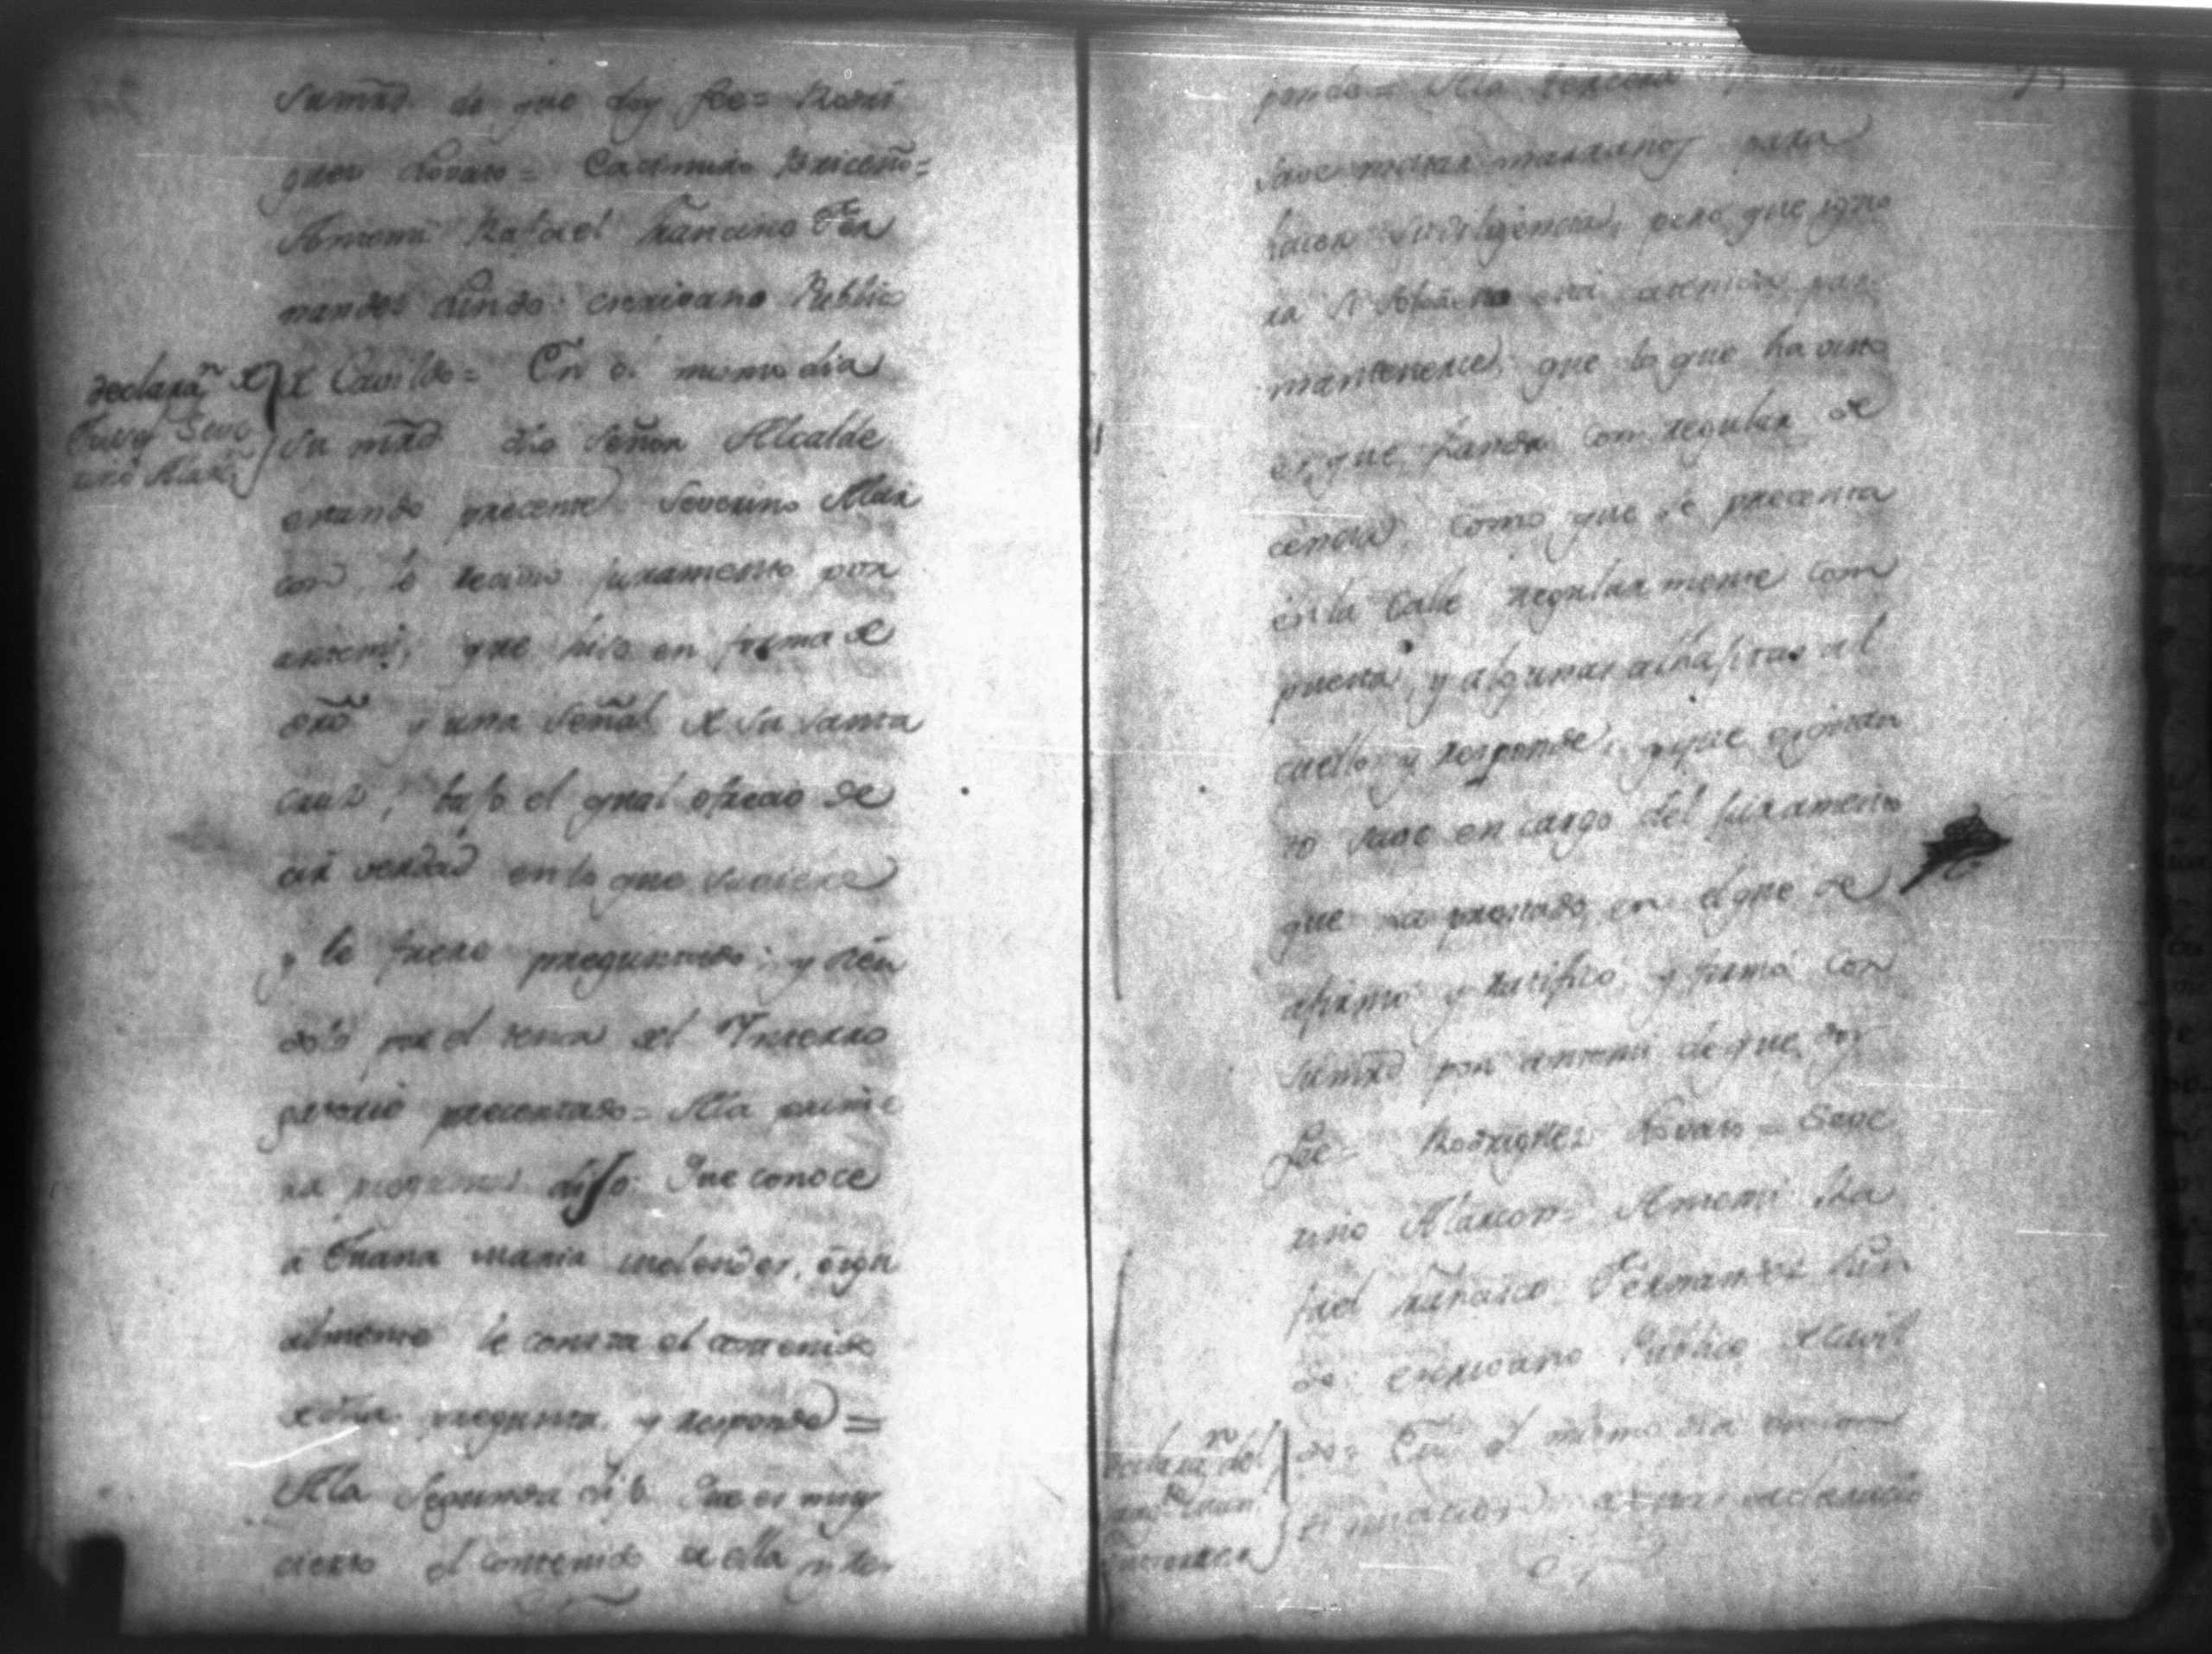 sumrd. de que doy fee= Rodri
guez Lovato= Casimiro Briceño=
Antemi Rafael Francisco Fer
nandez Lindo escrivano Public
Declaran. de
Testigo Seve
rino Alarcn.
de Cavildo= En el mismo dia
su mrd dho Señor Alcalde
estando precente Severino Alar
con, le recivio juramento por
antemi, que hiso en forma de
dro. y una señal de su santa
cruz, bajo el qual ofrecio de
cir verdad en lo que suviere
y le fuere preguntado; y sien
dolo por el tenor del Interro
gatorio precentado= Ala prime
ra pregunta dijo: Que conoce
á Juana Maria Melendes, é igu
almente le consta el contenido
de dha pregunta y responde=
Ala Segunda dijo Que es muy
cierto el contenido de ella y res
ponde= Ala tercera dijo que
save matar marranos para
hacer su diligencia, pero que igno
ra si
mantenerse, que lo que ha visto
es, que handa con regular de
cencia, como que se precenta
en la calle regular mente com
puesta, y algunas alhajitas al
cuello y responde, y que
to save en cargo del juramento
que ha prestado, en el que se
afirmo y ratifico, y firmó con
su mrd por antemi de que doy
fee= Rodriguez Lovato= Seve
rino Alarcon= Antemi Ra
fael Francisco Fernandez Lin
do escrivano Publico de Cavil
Declaran. del
do= En el mismo dia
declaracio